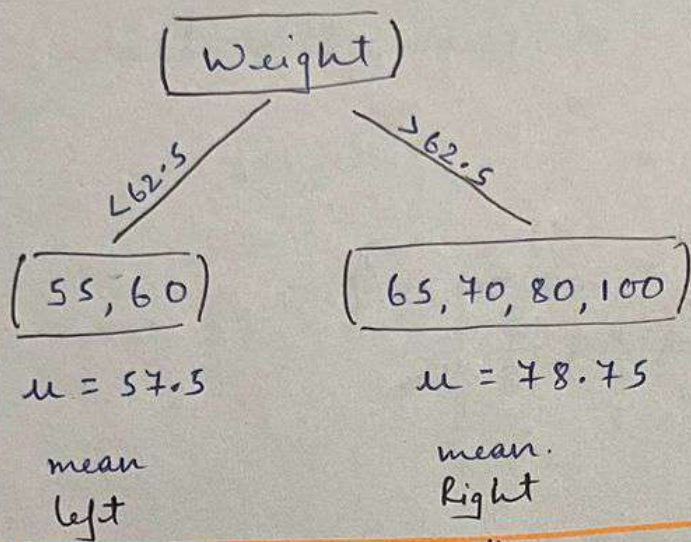 Weight
<62.5 >62.5
55, 60 65, 70, 80, 100
μ = 57.5 μ = 78.75
mean mean.
left Right